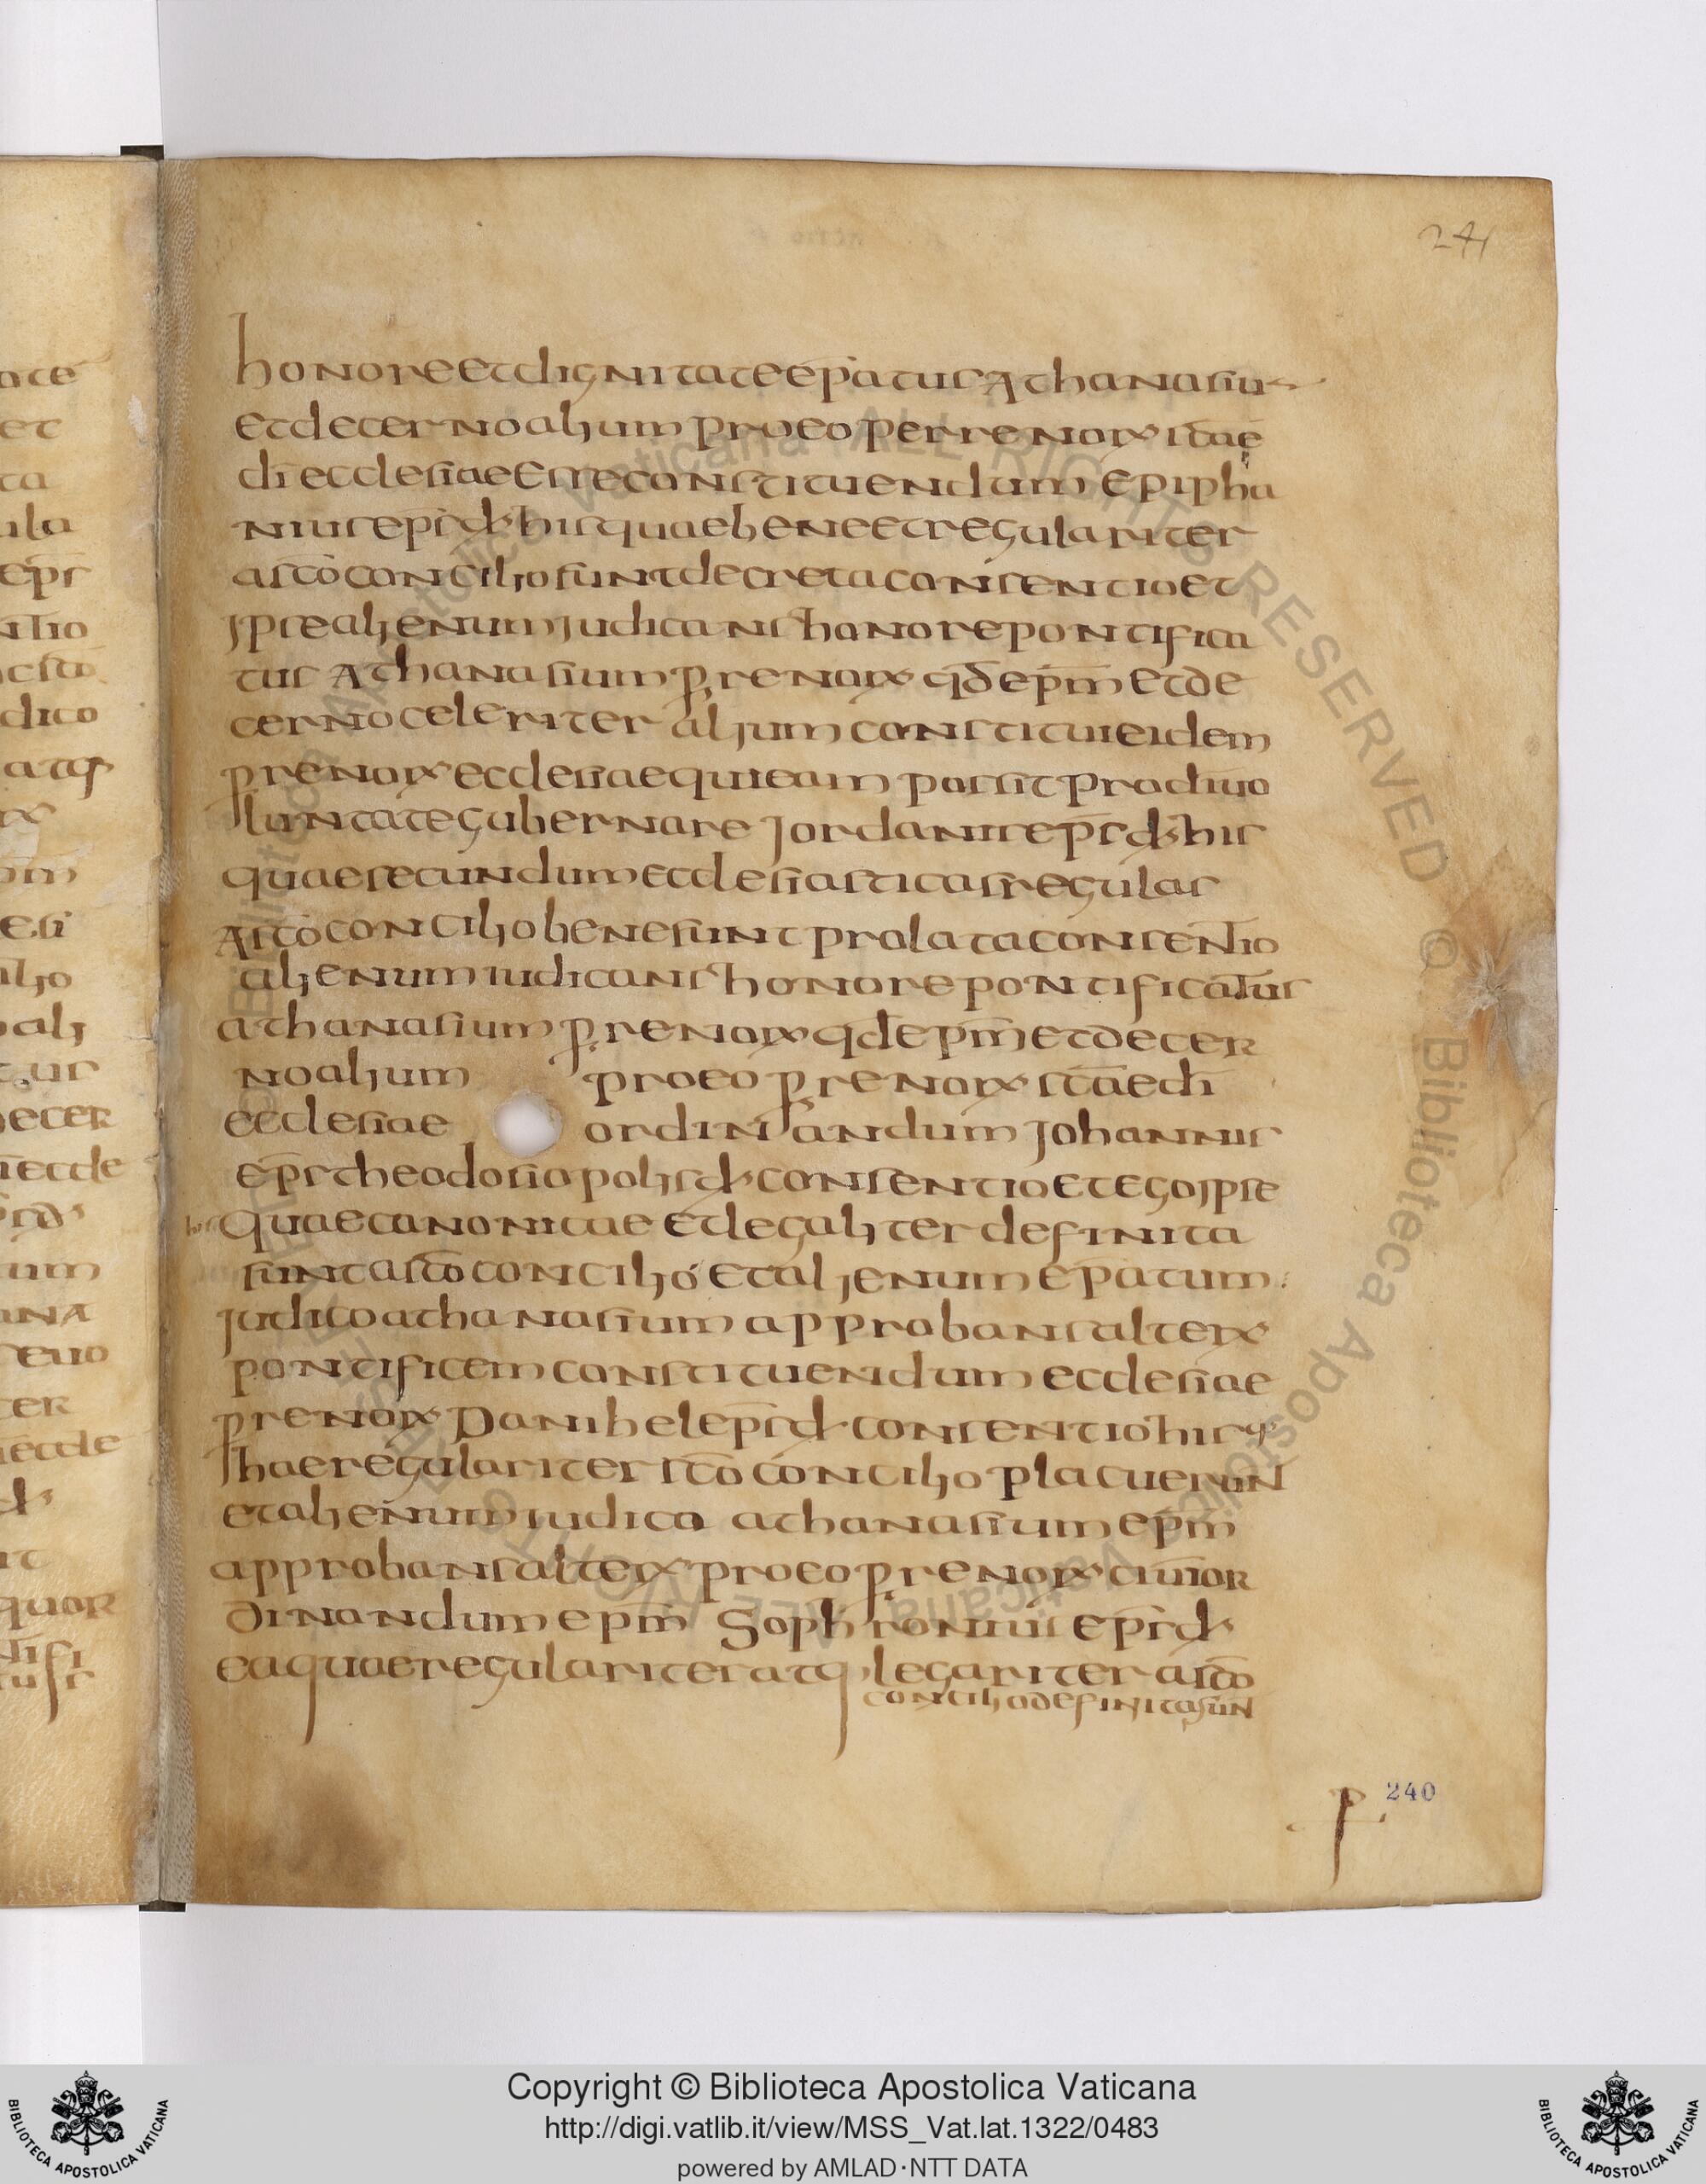 241
honore et dignitate ep̄atus Athanasius
et decerno alium pro eo perrenorx scae
dī ecclesiae esse constituendum Epipha
nius ep̄s dx his quae bene et regulariter
a scō concilio sunt decreta consentio et
ipse alienum judicans honore pontifica
tus Athanasium p̄renorx qd̄ ep̄m et de
cerno celeriter alium constitui eidem
p̄renorx ecclesiae qui eam possit pro diuo
luntate gubernare Jordanis ep̄s dx his
quae secundum ecclesiasticas regulas
A scō concilio bene sunt prolata consentio
alienum iudicans honore pontificatus
athanasium p̄renorx qd̄ ep̄m et decer
no alium pro eo p̄renorx scae dī
ecclesiae ordinandum Johannis
ep̄s theodosiopolis dx consentio et ego ipse
his quae canonicae et legaliter definita
sunt a scō concilio et alienum ep̄atum
judico athanasium approbans alterx
pontificem constituendum ecclesiae
p̄renorx Danihel ep̄s dx consentio his q̄
hae regulariter scō concilio placuerun
et alienum iudico athanasium ep̄m
approbans alterx pro eo p̄renorx ciuī or
dinandum ep̄m Sophronius ep̄s dx
ea quae regulariter atq̄ legariter a scō
concilio definita sun
240
Copyright © Biblioteca Apostolica Vaticana
http://digi.vatlib.it/view/MSS_Vat.lat.1322/0483
powered by AMLAD·NTT DATA
BIBLIOTECA APOSTOLICA VATICANA
BIBLIOTECA APOSTOLICA VATICANA